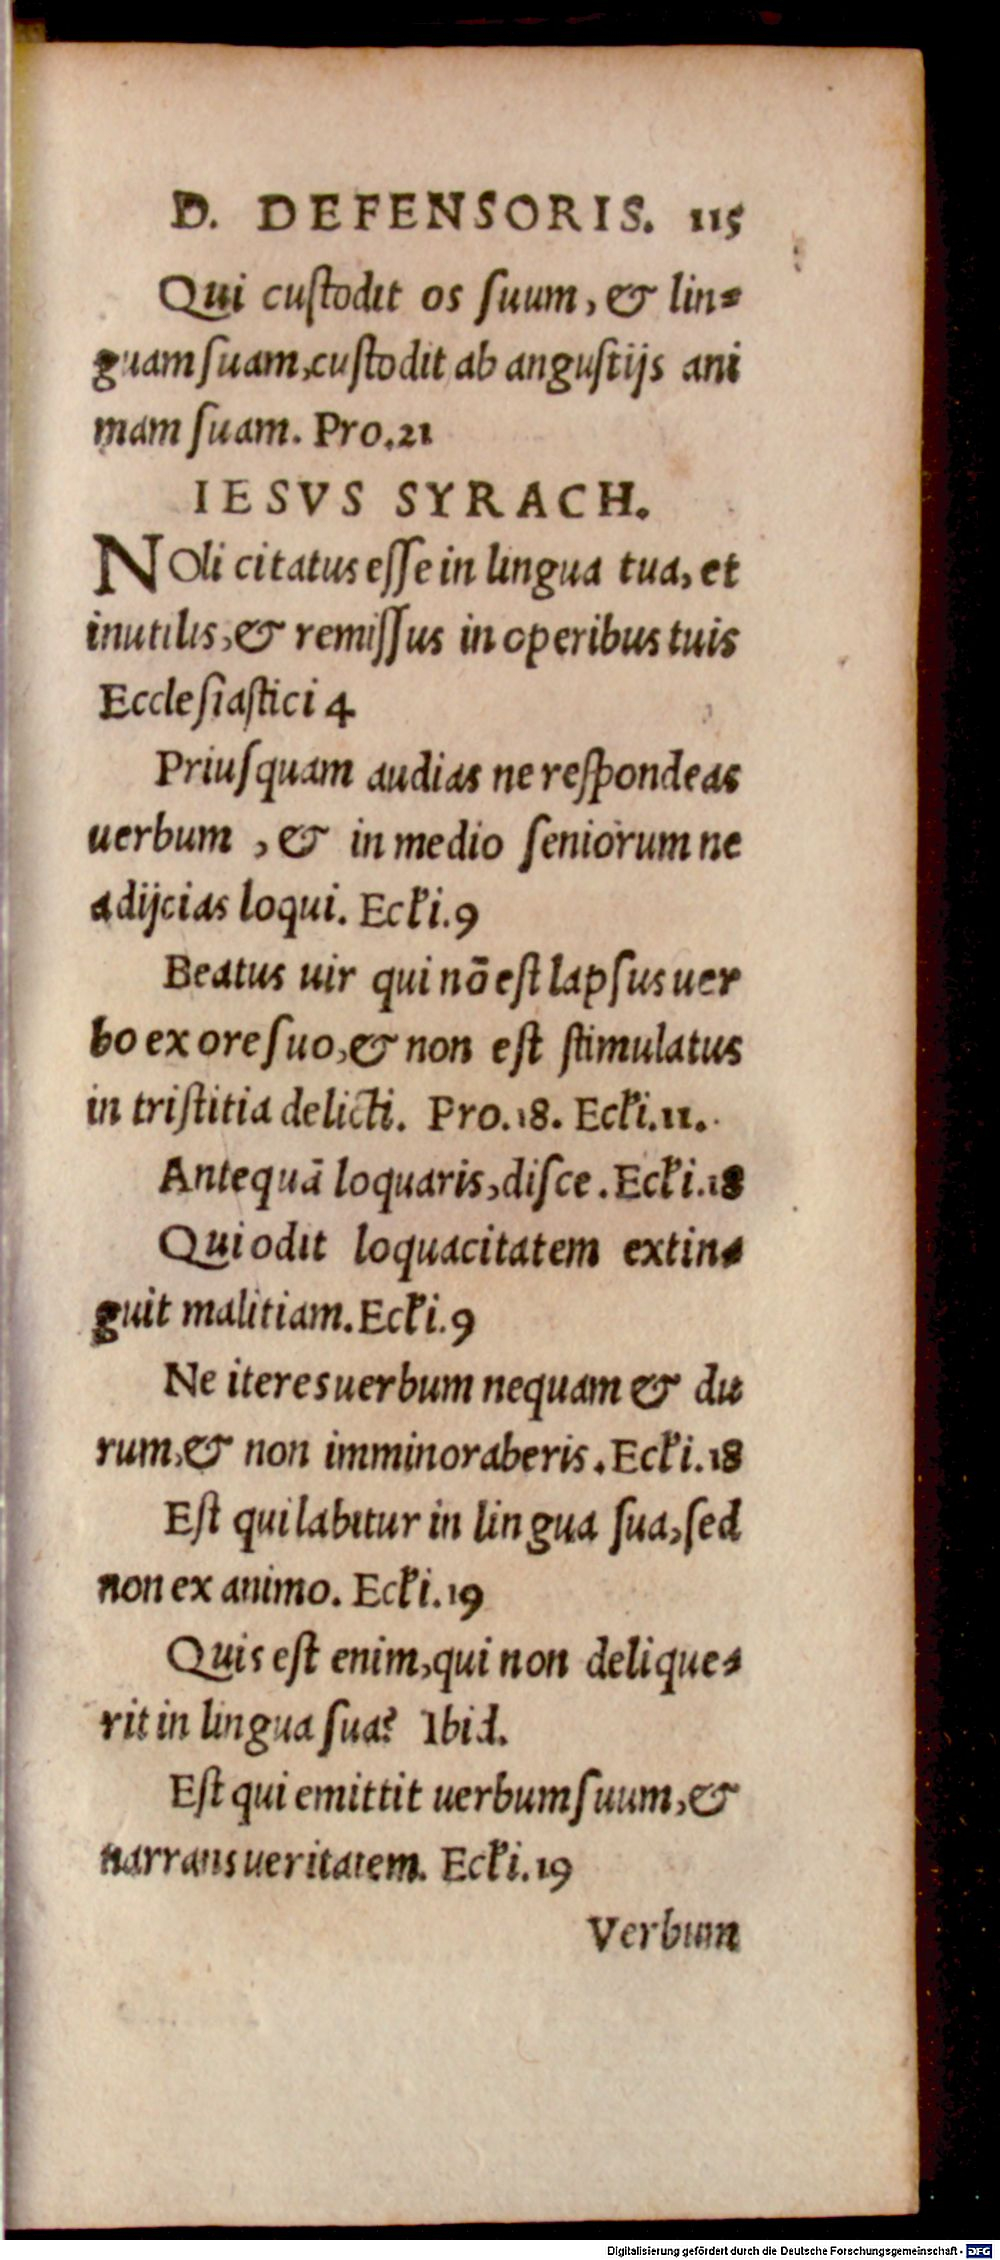 D. DEFENSORIS. 115
Qui cuſtodit os ſuum, & lin-
guam ſuam, cuſtodit ab anguſtijs ani
mam ſuam. Pro.21
IESVS SYRACH.
NOli citatus eſſe in lingua tua, et
inutilis, & remiſſus in operibus tuis
Eccleſiaſtici 4
Priuſquam audias ne reſpondeas
uerbum, & in medio ſeniorum ne
adijcias loqui. Ecki.9
Beatus uir qui nõ eſt lapſus uer
bo ex ore ſuo, & non eſt ſtimulatus
in triſtitia delicti. Pro.18. Ecki.11.
Antequã loquaris, diſce. Ecki.18
Qui odit loquacitatem extin-
guit malitiam. Ecki.9
Ne iteres uerbum nequam & du
rum, & non imminoraberis. Ecki.18
Eſt qui labitur in lingua ſua, ſed
non ex animo. Ecki.19
Quis eſt enim, qui non delique-
rit in lingua ſua? Ibid.
Eſt qui emittit uerbum ſuum, &
narrans ueritatem. Ecki.19
Verbum
Digitalisierung gefördert durch die Deutsche Forschungsgemeinschaft - DFG